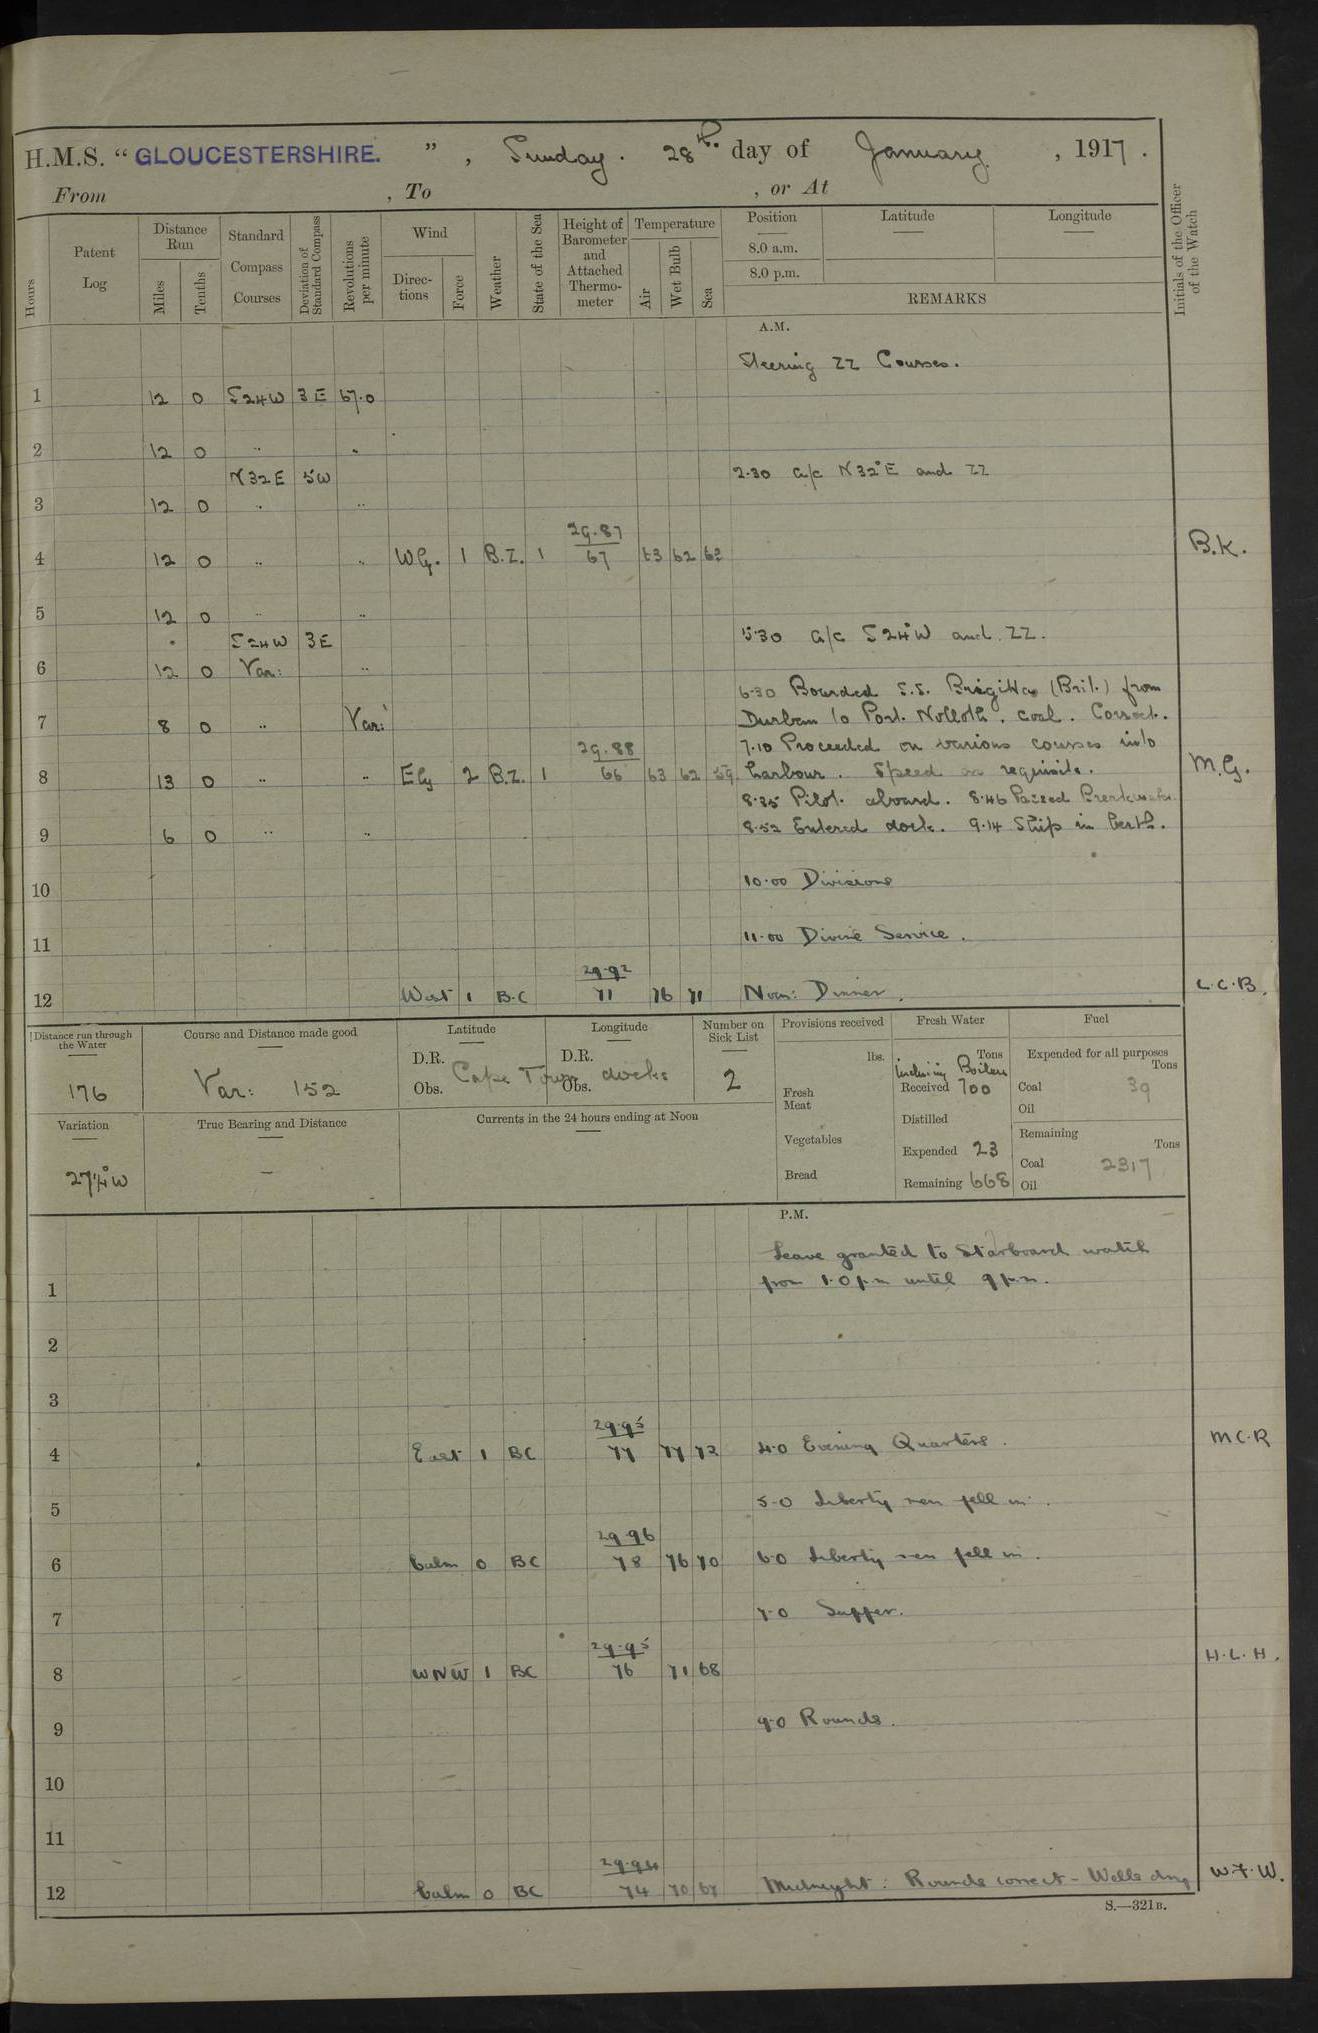 H.M.S. " GLOUCESTERSHIRE. " , Sunday. 28th. day of January , 1917 .
From , To , or At
Hours
Patent Log
Distance Run
Miles
Tenths
Standard Compass Courses
Deviation of Standard Compass
Revolutions per minute
Wind
Directions
Force
Weather
State of the Sea
Height of Barometer and Attached Thermometer
Temperature
Air
Wet Bulb
Sea
Position
8.0 a.m.
8.0 p.m.
Latitude
Longitude
REMARKS
Initials of the Officer of the Watch
A.M.
Steering ZZ Courses.
1 12 0 S24W 3E 67.0
2 12 0 " "
N32E 5W 2.30 a/c N32°E and ZZ
3 12 0 " "
29.87
4 12 0 " " W.G. 1 B.Z. 1 67 63 62 62 B.K.
5 12 0 " "
S24W 3E 5.30 a/c S24°W and ZZ.
6 12 0 Var: "
6.30 Bourded S.S. (Brit.) from
7 8 0 " Var: Durban to Port. Nolloth. coal. Correct.
29.88 7.10 Proceeded on various courses into
8 13 0 " " Ely 2 B.Z. 1 66 63 62 59 harbour. Speed as requisite. M.G.
8.35 Pilot. aboard. 8.46 Passed Breakwater.
9 6 0 " " 8.52 Entered dock. 9.14 Ship in berth.
10 10.00 Divisions
11 11.00 Divine Service.
29.92
12 West 1 B.C 71 76 71 Noon: Dinner. L.C.B.
Distance run through the Water
176
Course and Distance made good
Var: 152
Latitude
D.R.
Obs.
Longitude
D.R.
Obs.
Cape Town docks
Number on Sick List
2
Provisions received
lbs.
Fresh Meat
Vegetables
Bread
Fresh Water
Tons
Including Boilers
Received 700
Distilled
Expended 23
Remaining 668
Fuel
Expended for all purposes
Tons
Coal 39
Oil
Remaining
Tons
Coal 2317
Oil
Variation
27¼°W
True Bearing and Distance
—
Currents in the 24 hours ending at Noon
P.M.
Leave granted to Starboard watch
1 from 1.0 p.m until 9 p.m.
2
3
29.95
4 East 1 BC 77 77 72 4.0 Evening Quarters. M.C.R
5 5.0 Liberty men fell in.
29.96
6 Calm 0 BC 78 76 70 6.0 Liberty men fell in.
7 7.0 Supper.
29.95
8 WNW 1 BC 76 71 68 H.L.H.
9 9.0 Rounds.
10
11
29.94
12 Calm 0 BC 74 70 67 Midnight: Rounds correct - Wells dry W.F.W.
S.—321B.